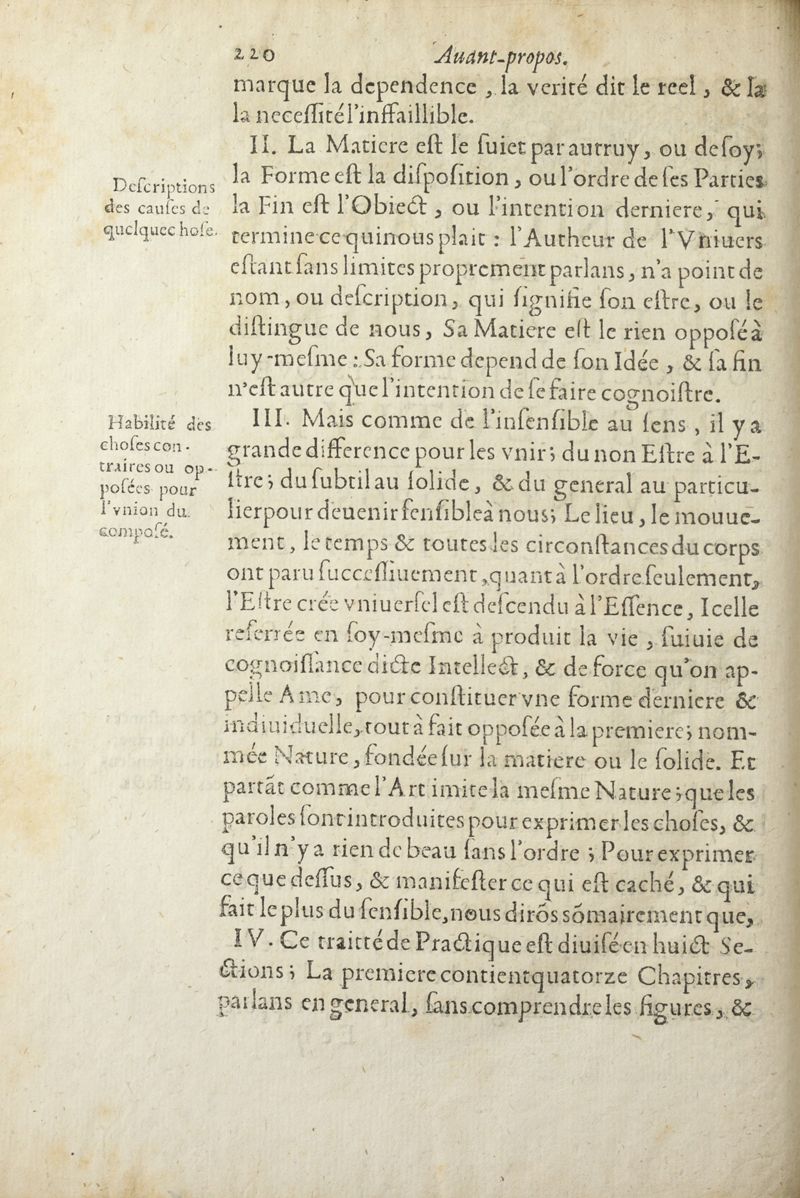 220 Auant-propos.
marque la dependence, la verité dit le reel, & la
la necessitél'inffaillible.
II. La Matiere est le suiet par autruy, ou desoy;
la Forme est la disposition, ou l'ordre de ses Parties
la Fin est l'Obiect, ou l'intention derniere, qui
termine ce qui nous plait : l'Autheur de l'Vniuers
estant sans limites proprement parlans, n'a point de
nom, ou description, qui signifie son estre, ou le
distingue de nous, Sa Matiere est le rien opposéà
luy-mesme : Sa forme depend de son Idée, & sa fin
n'est autre que l'intention de se faire cognoistre.
Descriptions
des causes de
quelquec hose.
III. Mais comme de l'insensible au sens, il y a
grande difference pour les vnir; du non Estre à l'E-
stre; du subtil au solide, & du general au particu-
lier pour deuenir sensibleà nous; Le lieu, le mouue-
ment, le temps & toutes les circonstances du corps
ont paru successiuement, quant à l'ordre seulement,
l'Estre crée vniuersel est descendu à l'Essence, Icelle
referrée en soy-mesme à produit la vie, suiuie de
cognoissance dicte Intellect, & de force qu'on ap-
pelle Ame, pour constituer vne forme derniere &
indiuiduelle, tout à fait opposée à la premiere; nom-
mée Nature, fondée sur la matiere ou le solide. Et
partãt comme l'Art imite la mesme Nature; que les
paroles sont introduites pour exprimer les choses, &
qu'il n'y a rien de beau sans l'ordre ; Pour exprimer
ce que dessus, & manifester ce qui est caché, & qui
fait le plus du sensible, nous dirõs sõmairement que,
Habilité des
choses con-
traires ou op-
posées pour
l'vnion du
composé.
IV. Ce traitté de Practique est diuisé en huict Se-
ctions; La premiere contient quatorze Chapitres,
parlans en general, sans comprendre les figures, &